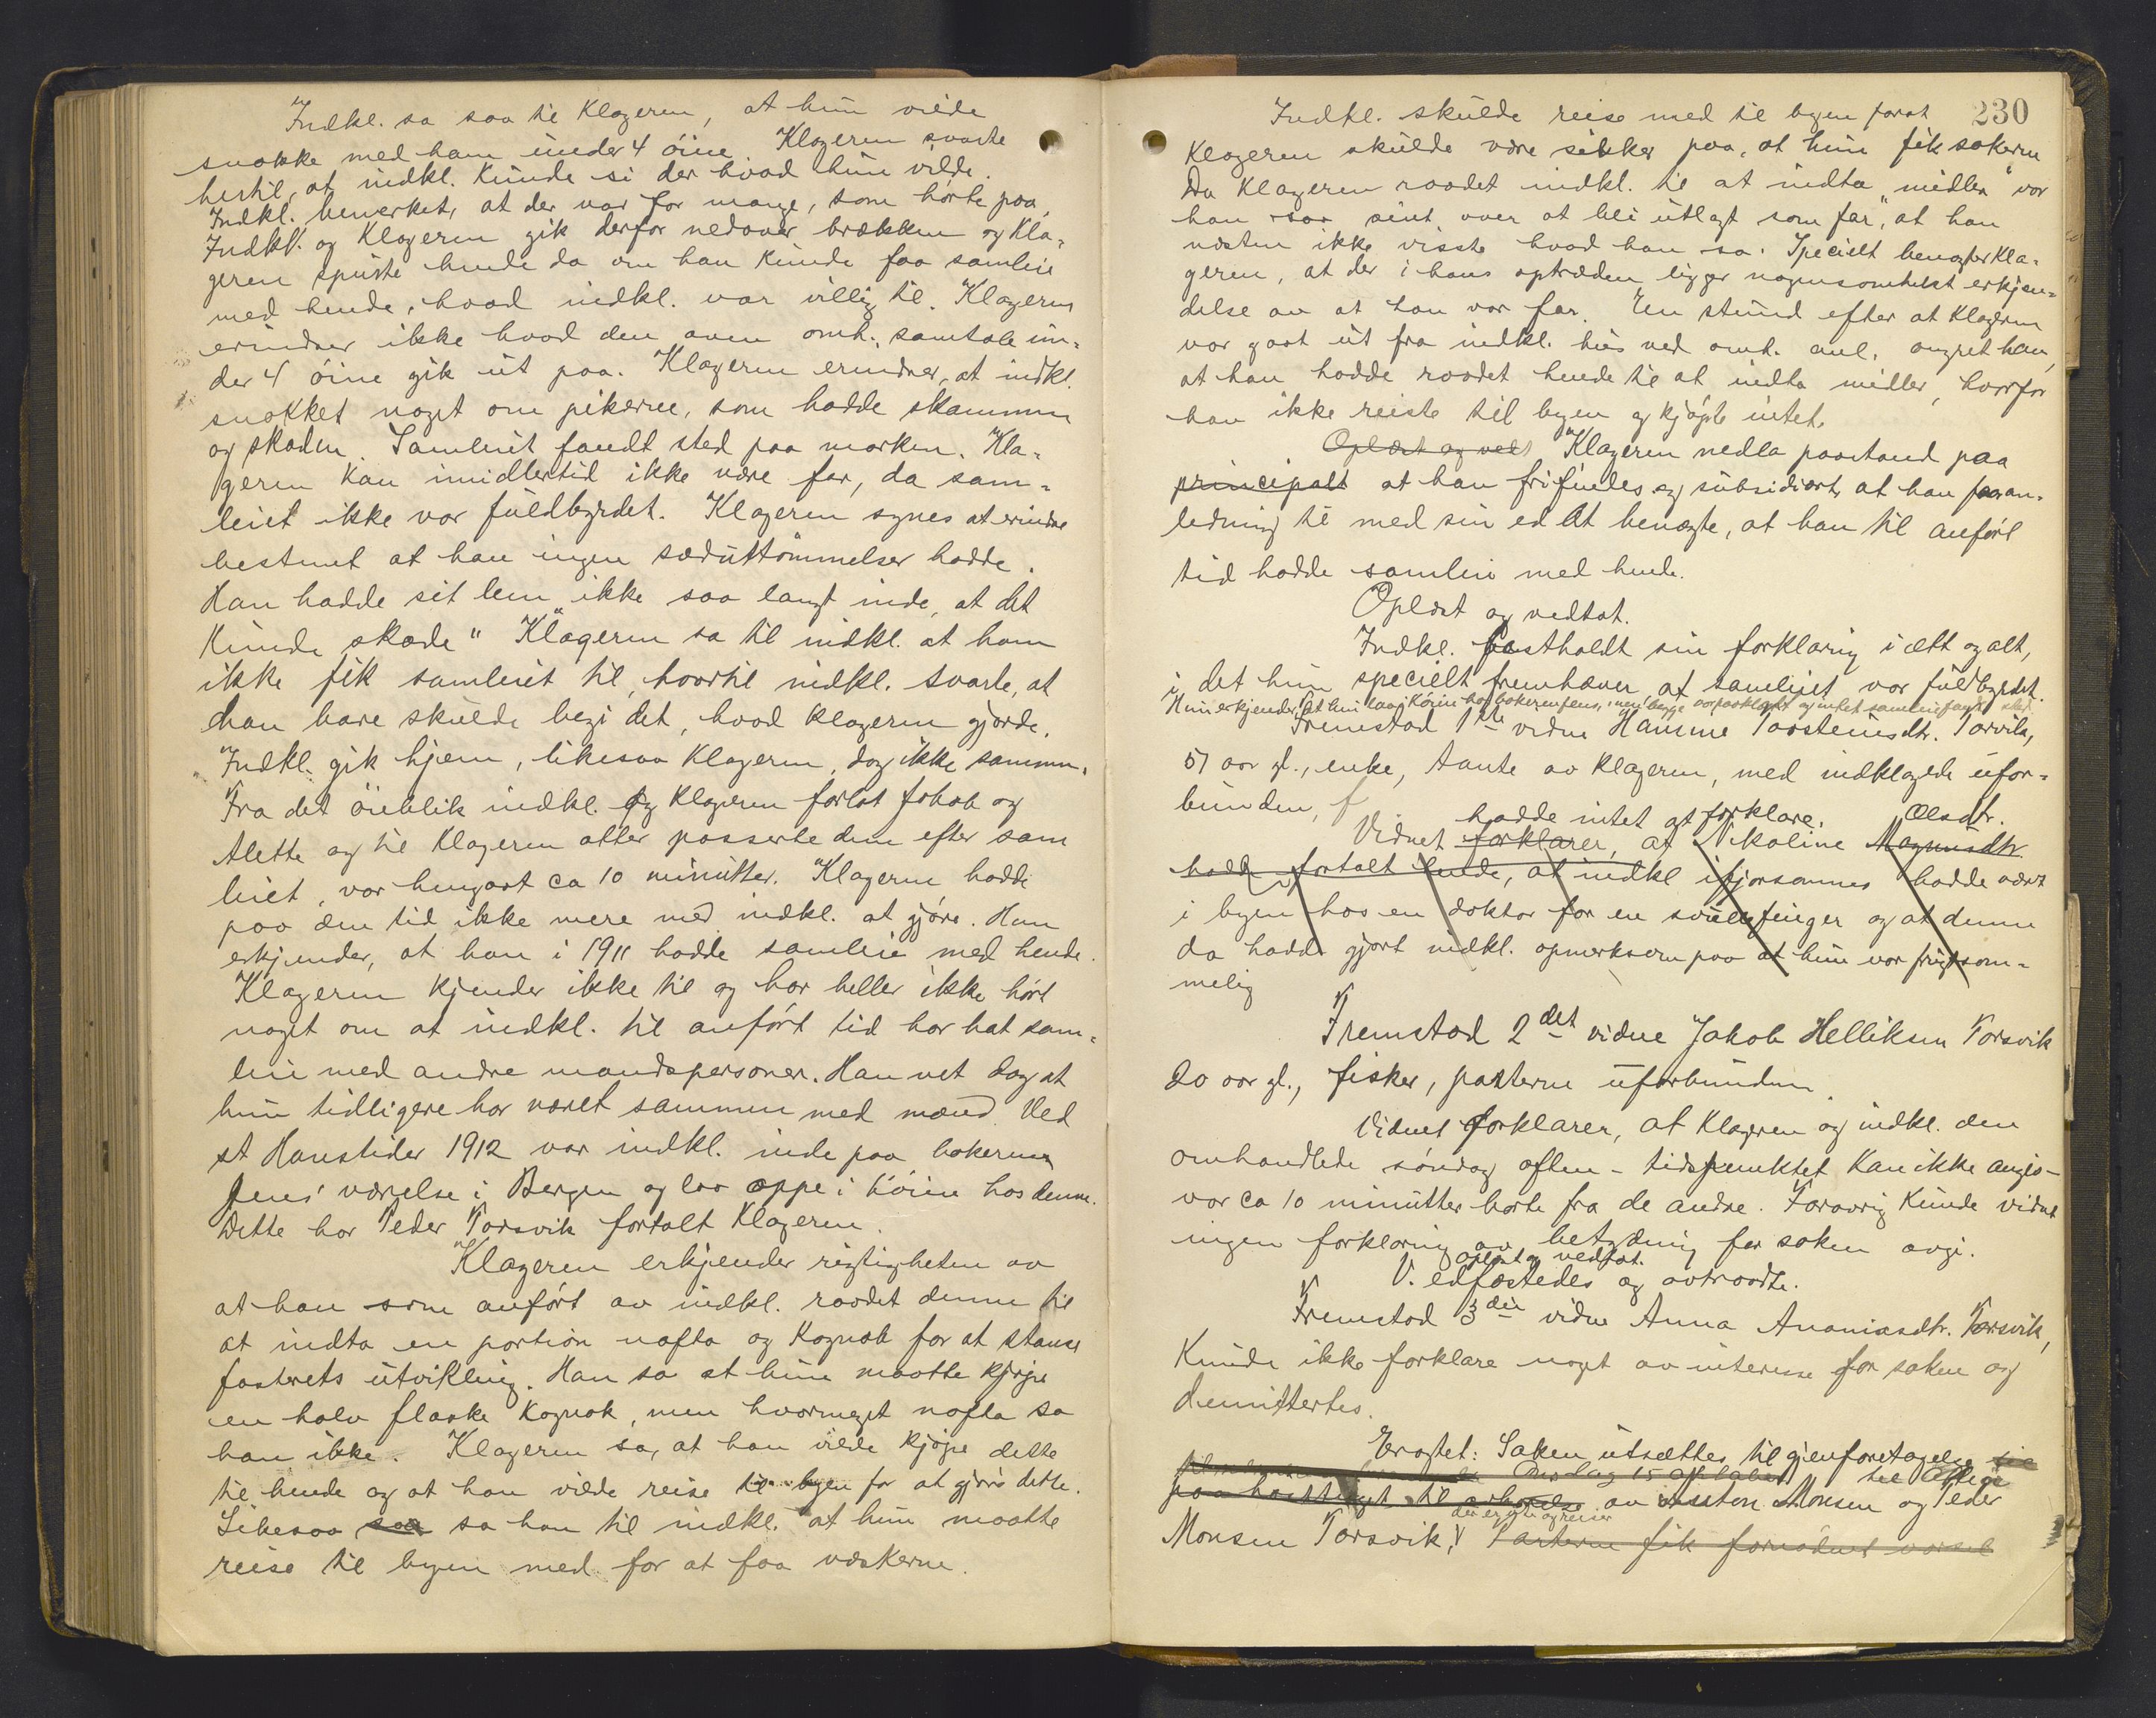 Indkl. sa saa til Klageren, at hun vilde
snakke med ham under 4 öine. Klageren svarte
hertil, at indkl. kunde si der hvad hun vilde.
Indkl. bemerket, at der var for mange, som hörte paa.
Indkl. og Klageren gik derfor nedover brækken og Kla-
geren spurte hende da om han kunde faa samleie
med hende, hvad indkl. var villig til. Klageren
erindrer ikke hvad den oven omh. samtale un-
der 4 öine gik ut paa. Klageren erindrer, at indkl.
snakket noget om pikerne, som hadde skammen
og skaden. Samleiet fandt sted paa marken. Kla-
geren kan imidlertid ikke være far, da sam-
leiet ikke var fuldbyrdet. Klageren synes at erindre
bestemt at han ingen sæduttömmelser hadde.
Han hadde sit lem ikke saa langt inde, at det
kunde "skade" Klageren sa til indkl. at ham
ikke fik samleiet til, hvortil indkl. svarte, at
han bare skulde begi det, hvad klageren gjorde.
Indkl. gik hjem, likesaa Klageren, dog ikke sammen.
Fra det öieblik indkl. og Klageren forlot Jakob og
Alette og til Klageren atter passerte dem efter sam
leiet, var hengaat ca 10 minutter. Klageren hadde
paa den tid ikke mere med indkl. at gjöre. Han
erkjender, at han i 1911 hadde samleie med hende.
Klageren kjender ikke til og har heller ikke hört
noget om at indkl. til anfört tid har hat sam-
leie med andre mandspersoner. Han vet dog at
hun tidligere har været sammen med mænd. Ved
st Hanstider 1912 var indkl. inde paa bokeren
Jens' værelse i Bergen og laa oppe i köien hos denne.
Dette har Peder Torsvik fortalt Klageren.
Klageren erkjender rigtigheten av
at han som anfört av indkl. raadet denne til
at indta en portion nafta og Kognak for at stanse
fosterets utvikling. Han sa at hun maatte kjöpe
en halv flaske Kognak, men hvormeget nafta sa
han ikke. Klageren sa, at han vilde kjöpe dette
til hende og at han vilde reise til byen for at gjöre dette.
Likesaa saa sa han til indkl. at hun maatte
reise til byen med for at faa væskerne.
230
Indkl. skulde reise med til byen forat
Klageren skulde være sikker paa, at hun fik sakerne
Da Klageren raadet indkl. til at indta "midlen" var
han saa sint over at bli utlagt som far, at han
næsten ikke visste hvad han sa. Specielt benegter Kla-
geren, at der i hans optræden ligger nogensomhelst erkjen-
delse av at han var far. En stund efter at Klageren
var gaat ut fra indkl. hus ved omh. anl. angret han,
at han hadde raadet hende til at indta midler, hvorfor
han ikke reiste til byen og kjöpte intet.
Oplæst og vedt Klageren nedla paastand paa
principalt at han frifindes og subsidiært, at han faar an-
ledning til med sin ed at benegte, at han til anfört
tid hadde samleie med hende.
Oplæst og vedtat.
Indkl. fastholdt sin forklaring i ett og alt,
i det hun specielt fremhæver, at samleiet var fuldbyrdet.
Hun erkjender, at hun laa i köien hos bokeren Jens, men begge var paaklædt og intet samleie fandt sted.
Fremstod 1ste vidne Hansine Torsteinsdtr. Torvik,
51 aar gl., enke, tante av Klageren, med indklagede ufor-
bunden,
hadde intet at forklare. Olesdtr.
Vidnet forklarer, at Nikoline Magnusdtr
hadde fortalt hende, at indkl ifjorsommer hadde vært
i byen hos en doktor for en svullenfinger og at denne
da hadde gjort indkl. opmerksom paa at hun var frugtsom-
melig
Fremstod 2det vidne Jakob Helliksen Torsvik
20 aar gl., fisker, parterne uforbunden.
Vidnet forklarer, at Klageren og indkl. den
omhandlede söndag aften - tidspunktet kan ikke angis -
var ca 10 minutter borte fra de andre. Forövrig kunde vidnet
ingen forklaring av betydning for saken avgi.
oplæst og vedtat.
V. edfæstedes og avtraadte.
Fremstod 3die vidne Anna Ananiasdtr. Torsvik,
kunde ikke forklare noget av interesse for saken og
demittertes.
Eragtet: Saken utsættes til gjenforetagelse
Onsdag 15 oktober til
paa til avhörelse av Monsen og Peder
Monsen Torsvik,
Parterne fik fornödent varsel